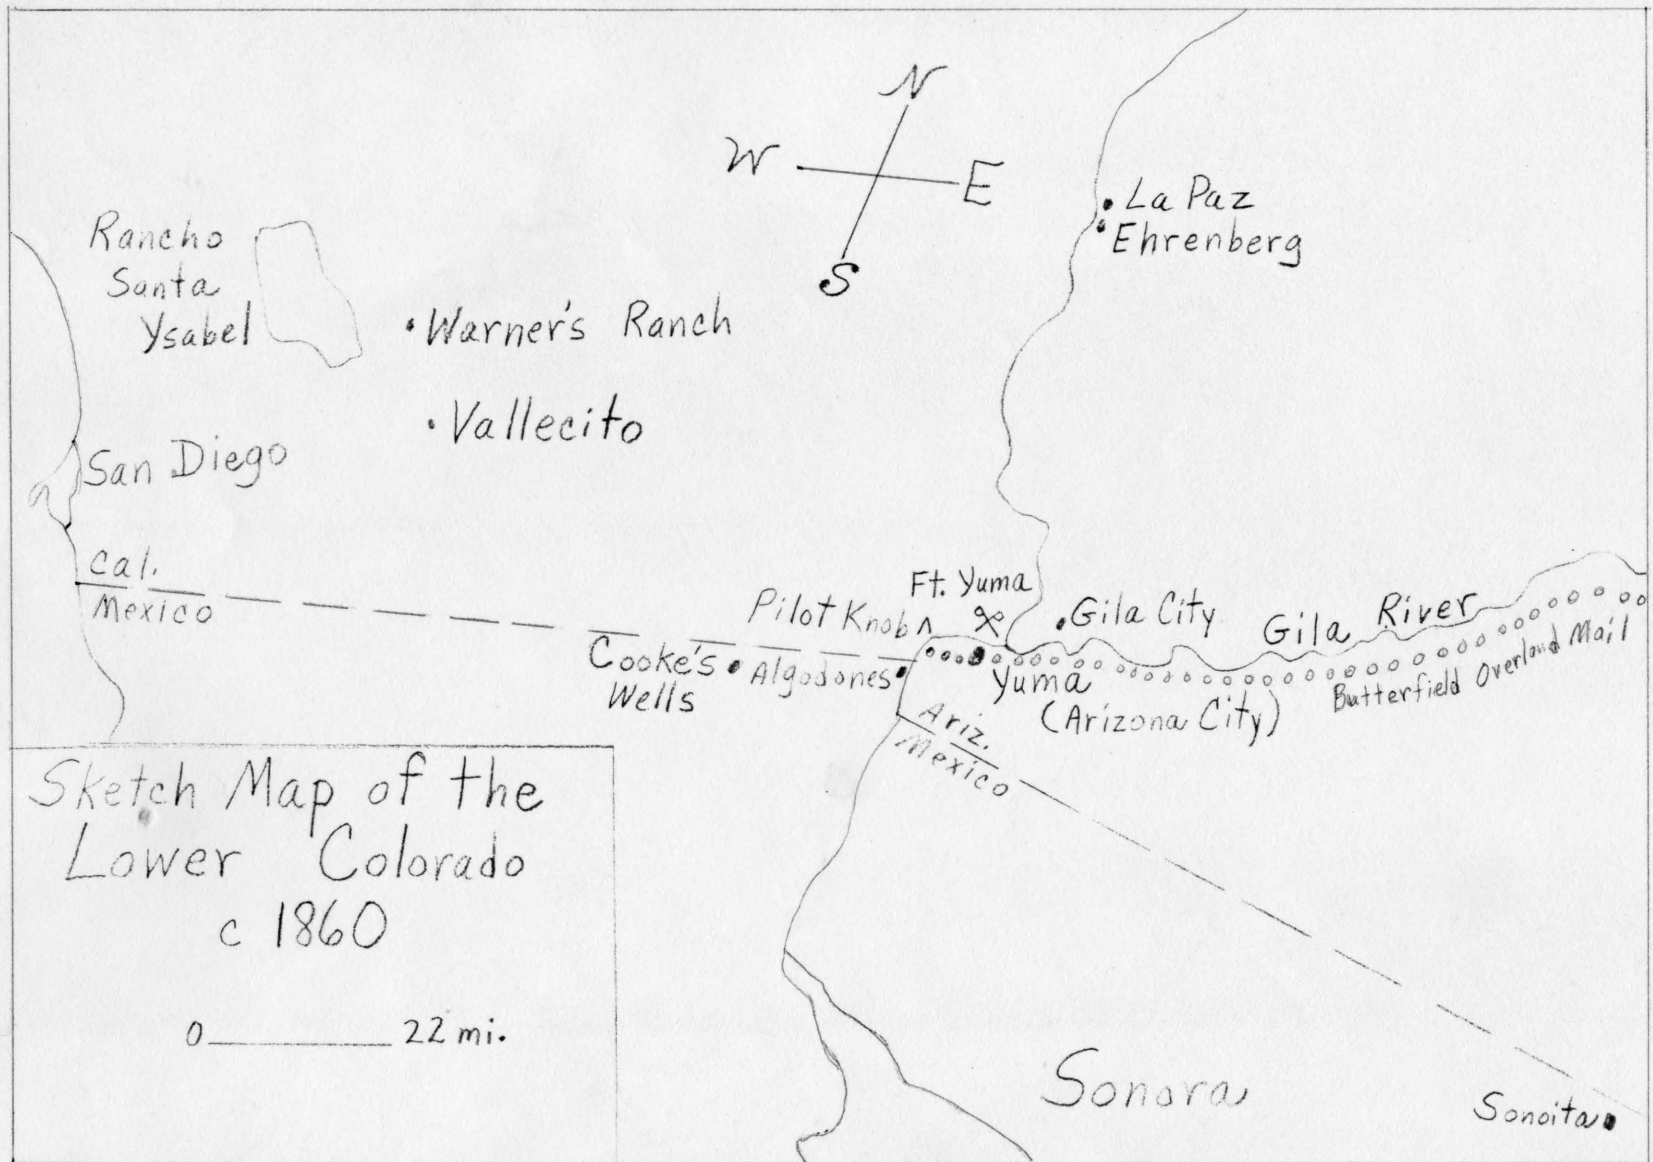 N
W E
S
La Paz
Ehrenberg
Rancho
Santa
Ysabel
Warner's Ranch
Vallecito
San Diego
Cal.
Mexico
Ft. Yuma
Pilot Knob
Gila City
Gila River
Cooke's
Wells
Algodones
Yuma
(Arizona City)
Butterfield Overland Mail
Ariz.
Mexico
Sketch Map of the
Lower Colorado
c 1860
0 22 mi.
Sonora
Sonoita